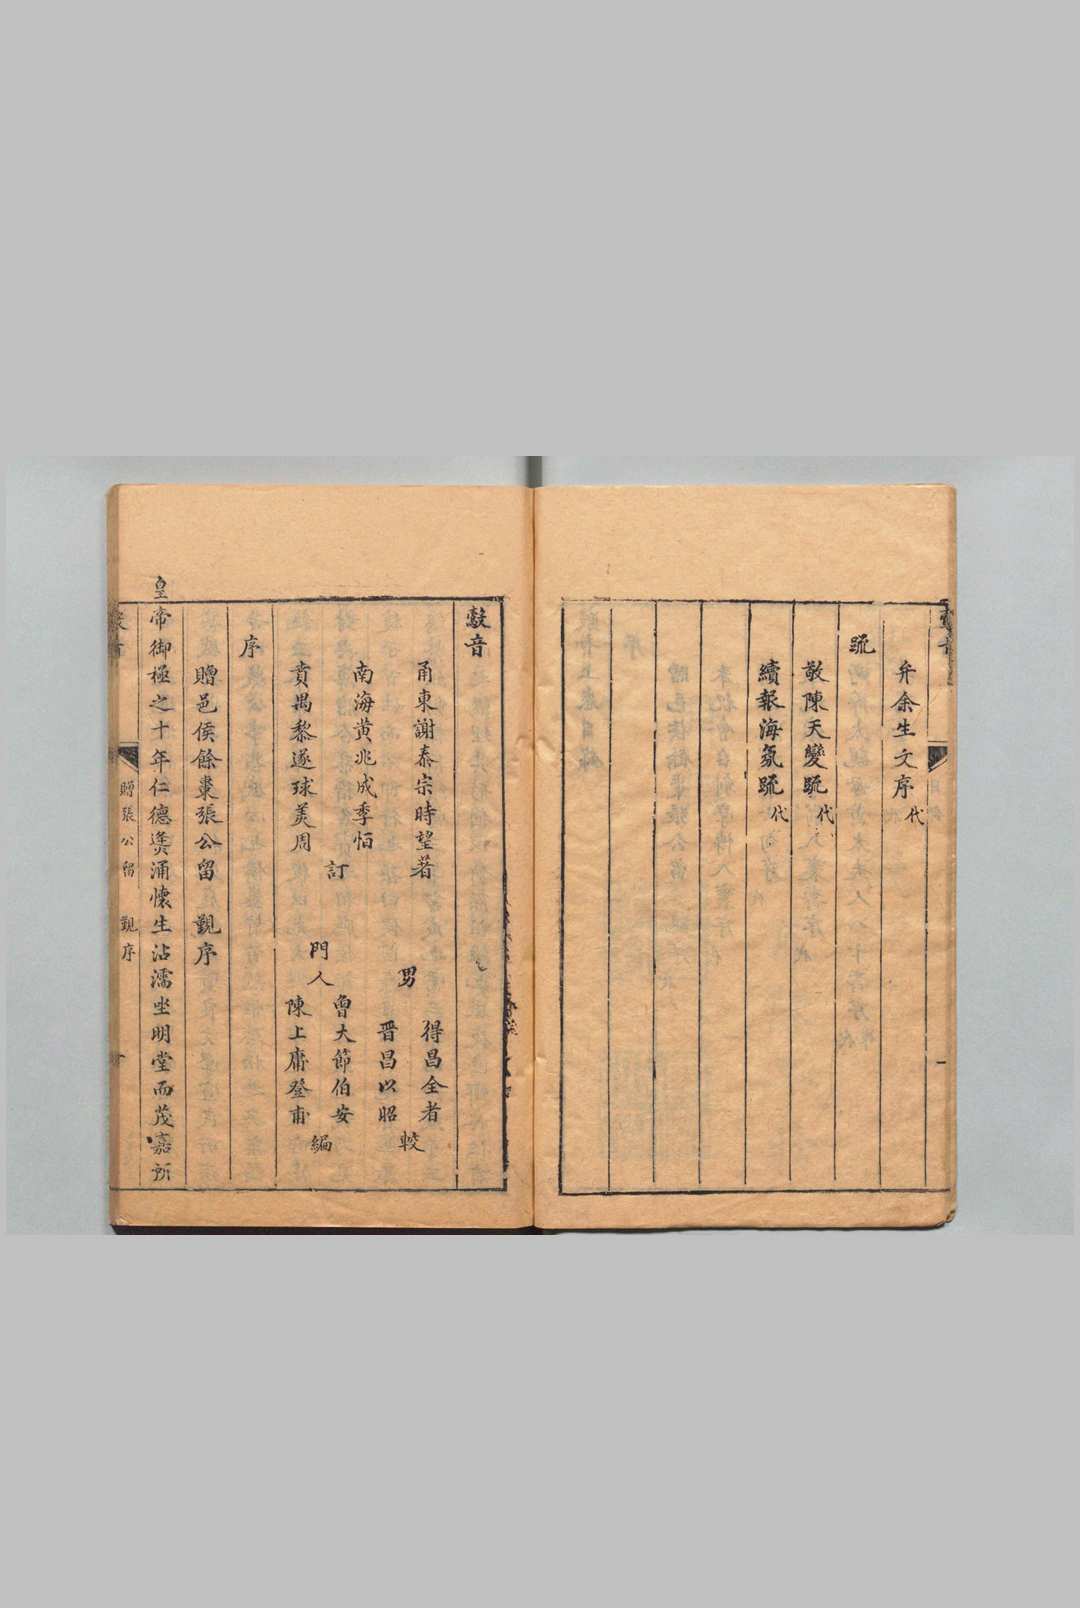 弁余生文序代
疏
敬陳天變疏代
續報海氛疏代
鷇音
甬東謝泰宗時望著
南海黃兆成季怕
賁禺黎遂球美周
訂
男
得昌全者
晋昌以昭
較
門人
曾大節伯安
陳上庸登甫
編
序
贈邑侯餘棗張公留覲序
皇帝御極之十年仁德洋涌懷生沾濡坐明堂而茂嘉祈
贈張公留覲序